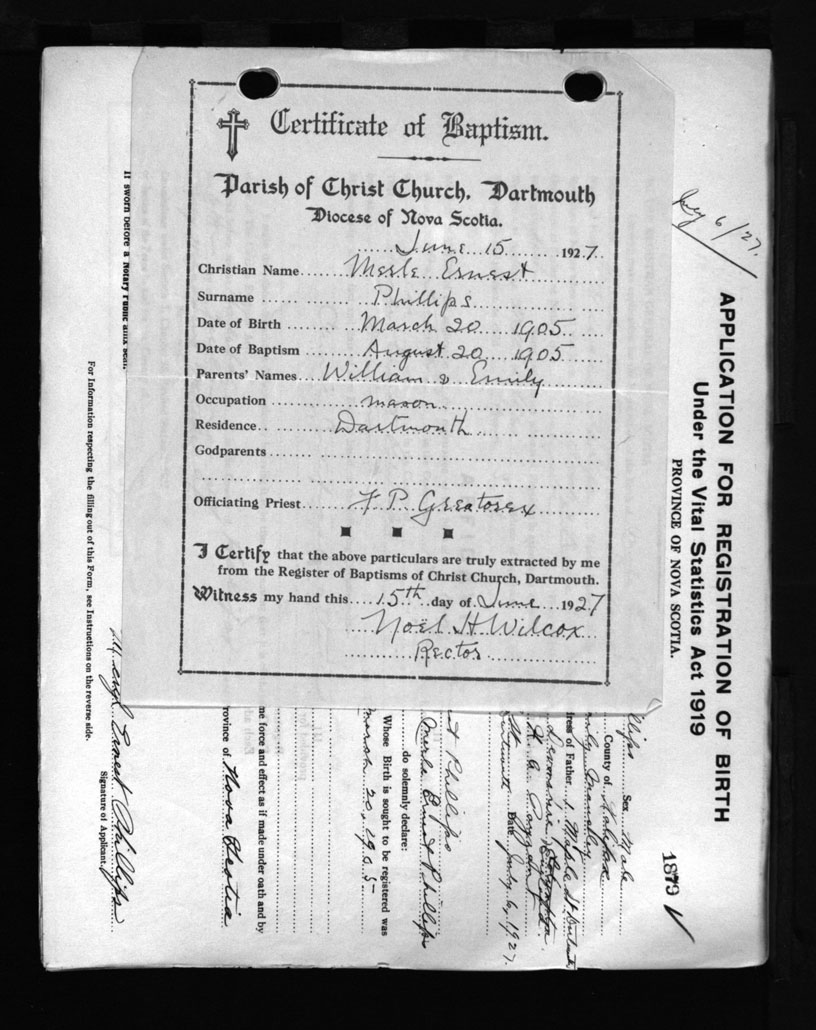 Certificate of Baptism.
Parish of Christ Church, Dartmouth
Diocese of Nova Scotia.
June 15 1927
Christian Name Merle Ernest
Surname Phillips
Date of Birth March 20 1905
Date of Baptism August 20 1905
Parents' Names William & Emily
Occupation mason
Residence Dartmouth
Godparents
Officiating Priest F P Greatorex
I Certify that the above particulars are truly extracted by me
from the Register of Baptisms of Christ Church, Dartmouth.
Witness my hand this 15th day of June 1927
Noel H Wilcox
Rector
6/27.
APPLICATION FOR REGISTRATION OF BIRTH
Under the Vital Statistics Act 1919
PROVINCE OF NOVA SCOTIA.
1879
Sex Male
County of Halifax
of Father
Date July 6, 1927.
Phillips
Merle Ernest Phillips
do solemnly declare:
Whose Birth is sought to be registered was
March 20, 1905
me force and effect as if made under oath and by
rovince of Nova Scotia
Ernest Phillips
Signature of Applicant.
If sworn before a Notary Public affix seal.
For Information respecting the filling out of this Form, see Instructions on the reverse side.